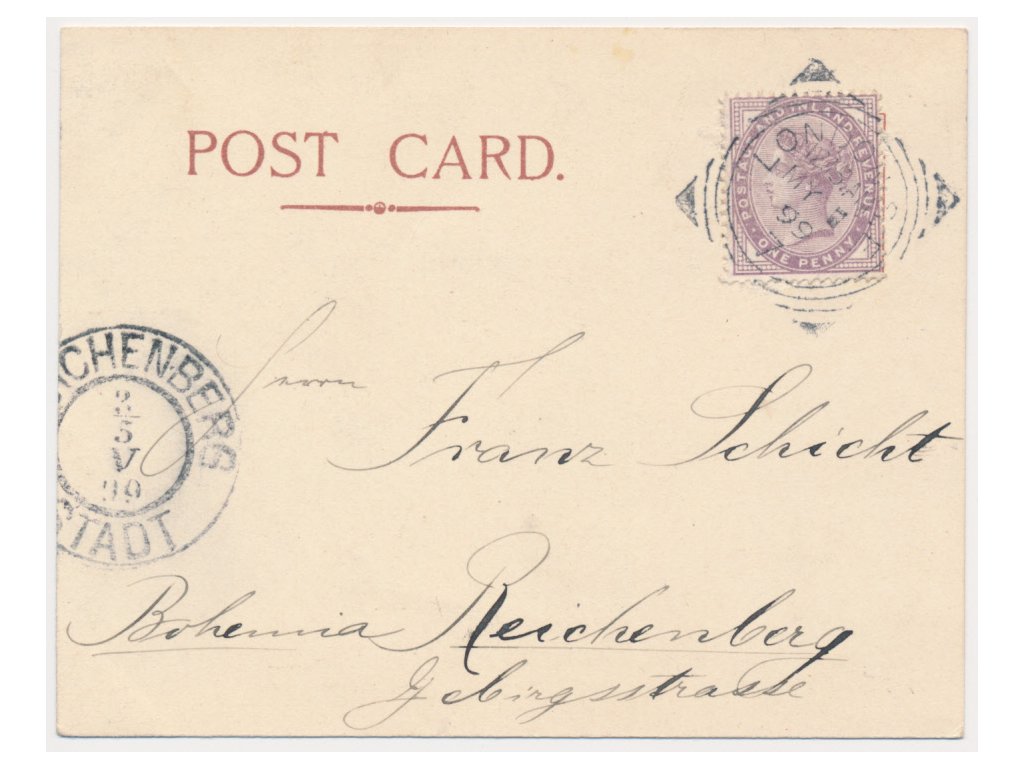 POST CARD.
POSTAGE AND INLAND REVENUE
ONE PENNY
LON
MY
99
Herrn
Franz Schicht
ICHENBERG
3/5
V
99
STADT
Bohemia Reichenberg
Gebirgsstrasse